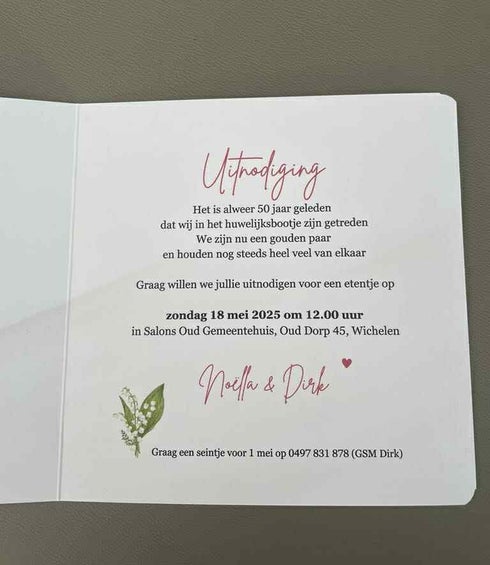 Uitnodiging
Het is alweer 50 jaar geleden
dat wij in het huwelijksbootje zijn getreden
We zijn nu een gouden paar
en houden nog steeds heel veel van elkaar
Graag willen we jullie uitnodigen voor een etentje op
zondag 18 mei 2025 om 12.00 uur
in Salons Oud Gemeentehuis, Oud Dorp 45, Wichelen
Noëlla & Dirk
Graag een seintje voor 1 mei op 0497 831 878 (GSM Dirk)